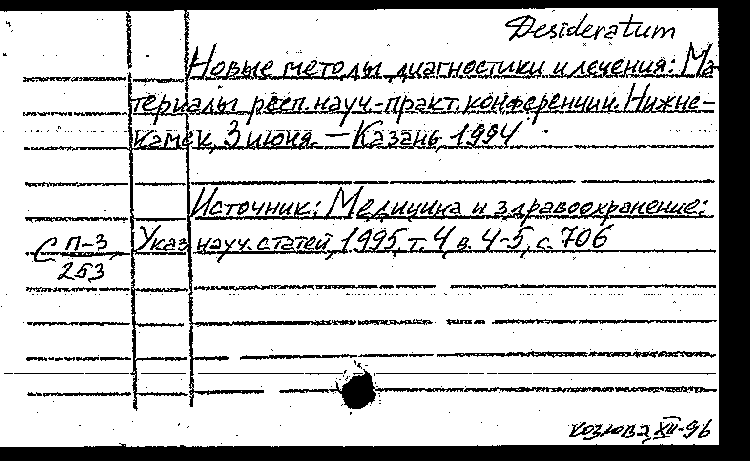 Desideratum
Новые методы диагностики и лечения: Ма-
териалы респ. науч.-практ. конференции. Нижне-
камск, 3 июня. — Казань, 1994
Источник: Медицина и здравоохранение:
С П-3/253, Указ. науч. статей, 1995, т. 4, в. 4-5, с. 706
Козлова, XII-96